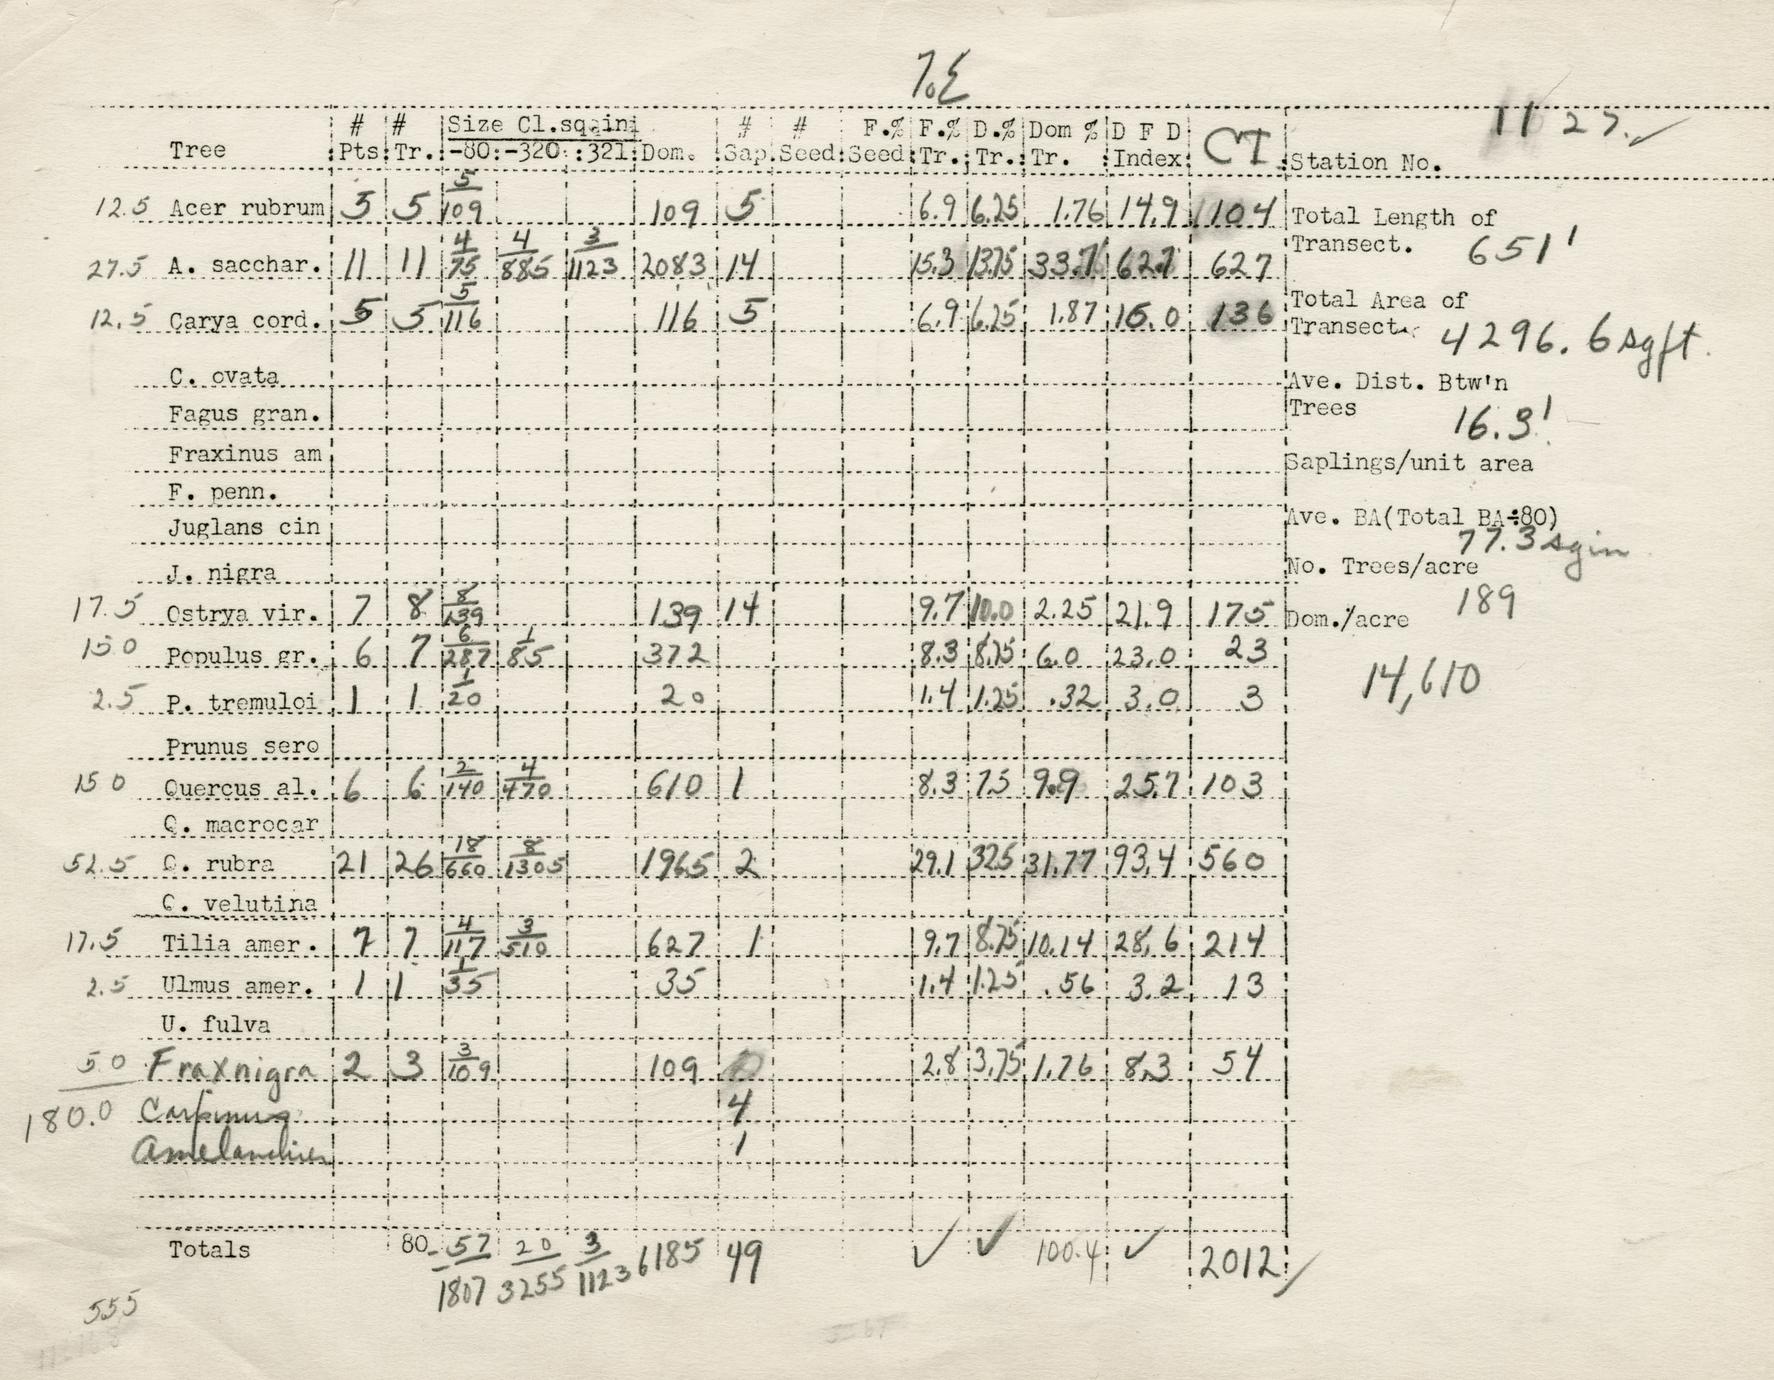 T.E
# # Size Cl.sqain # # F.% F.% D.% Dom % D F D CT
Tree Pts. Tr. -80: -320 :321 Dom. Sap. Seed Seed Tr. Tr. Tr. Index Station No. 1127. ✓
12.5 Acer rubrum 5 5 5/109 109 5 6.9 6.25 1.76 14.9 104
Total Length of
Transect. 651'
27.5 A. sacchar. 11 11 4/75 4/885 3/1123 2083 14 15.3 13.75 33.7 62.7 627
12.5 Carya cord. 5 5 5/116 116 5 6.9 6.25 1.87 15.0 136
Total Area of
Transect. 4296.6 sqft.
C. ovata
Ave. Dist. Btw'n
Trees 16.3'
Fagus gran.
Fraxinus am
Saplings/unit area
F. penn.
Juglans cin
Ave. BA(Total BA÷80)
77.3 sqin
J. nigra
No. Trees/acre
189
17.5 Ostrya vir. 7 8 8/139 139 14 9.7 10.0 2.25 21.9 175
Dom./acre
14,610
15.0 Populus gr. 6 7 6/287 1/85 372 8.3 8.75 6.0 23.0 23
2.5 P. tremuloi 1 1 1/20 20 1.4 1.25 .32 3.0 3
Prunus sero
15 0 Quercus al. 6 6 2/140 4/470 610 1 8.3 7.5 9.9 25.7 103
Q. macrocar
52.5 Q. rubra 21 26 18/660 8/1305 1965 2 29.1 32.5 31.77 93.4 560
Q. velutina
17.5 Tilia amer. 7 7 4/117 3/510 627 1 9.7 8.75 10.14 28.6 214
2.5 Ulmus amer. 1 1 1/35 35 1.4 1.25 .56 3.2 13
U. fulva
5 0 Frax nigra 2 3 3/109 109 2.8 3.75 1.76 8.3 54
180.0 Carpinus 4
Amelanchier 1
Totals 80 57/1807 20/3255 3/1123 6185 49 ✓ ✓ 100.4 ✓ 2012
555